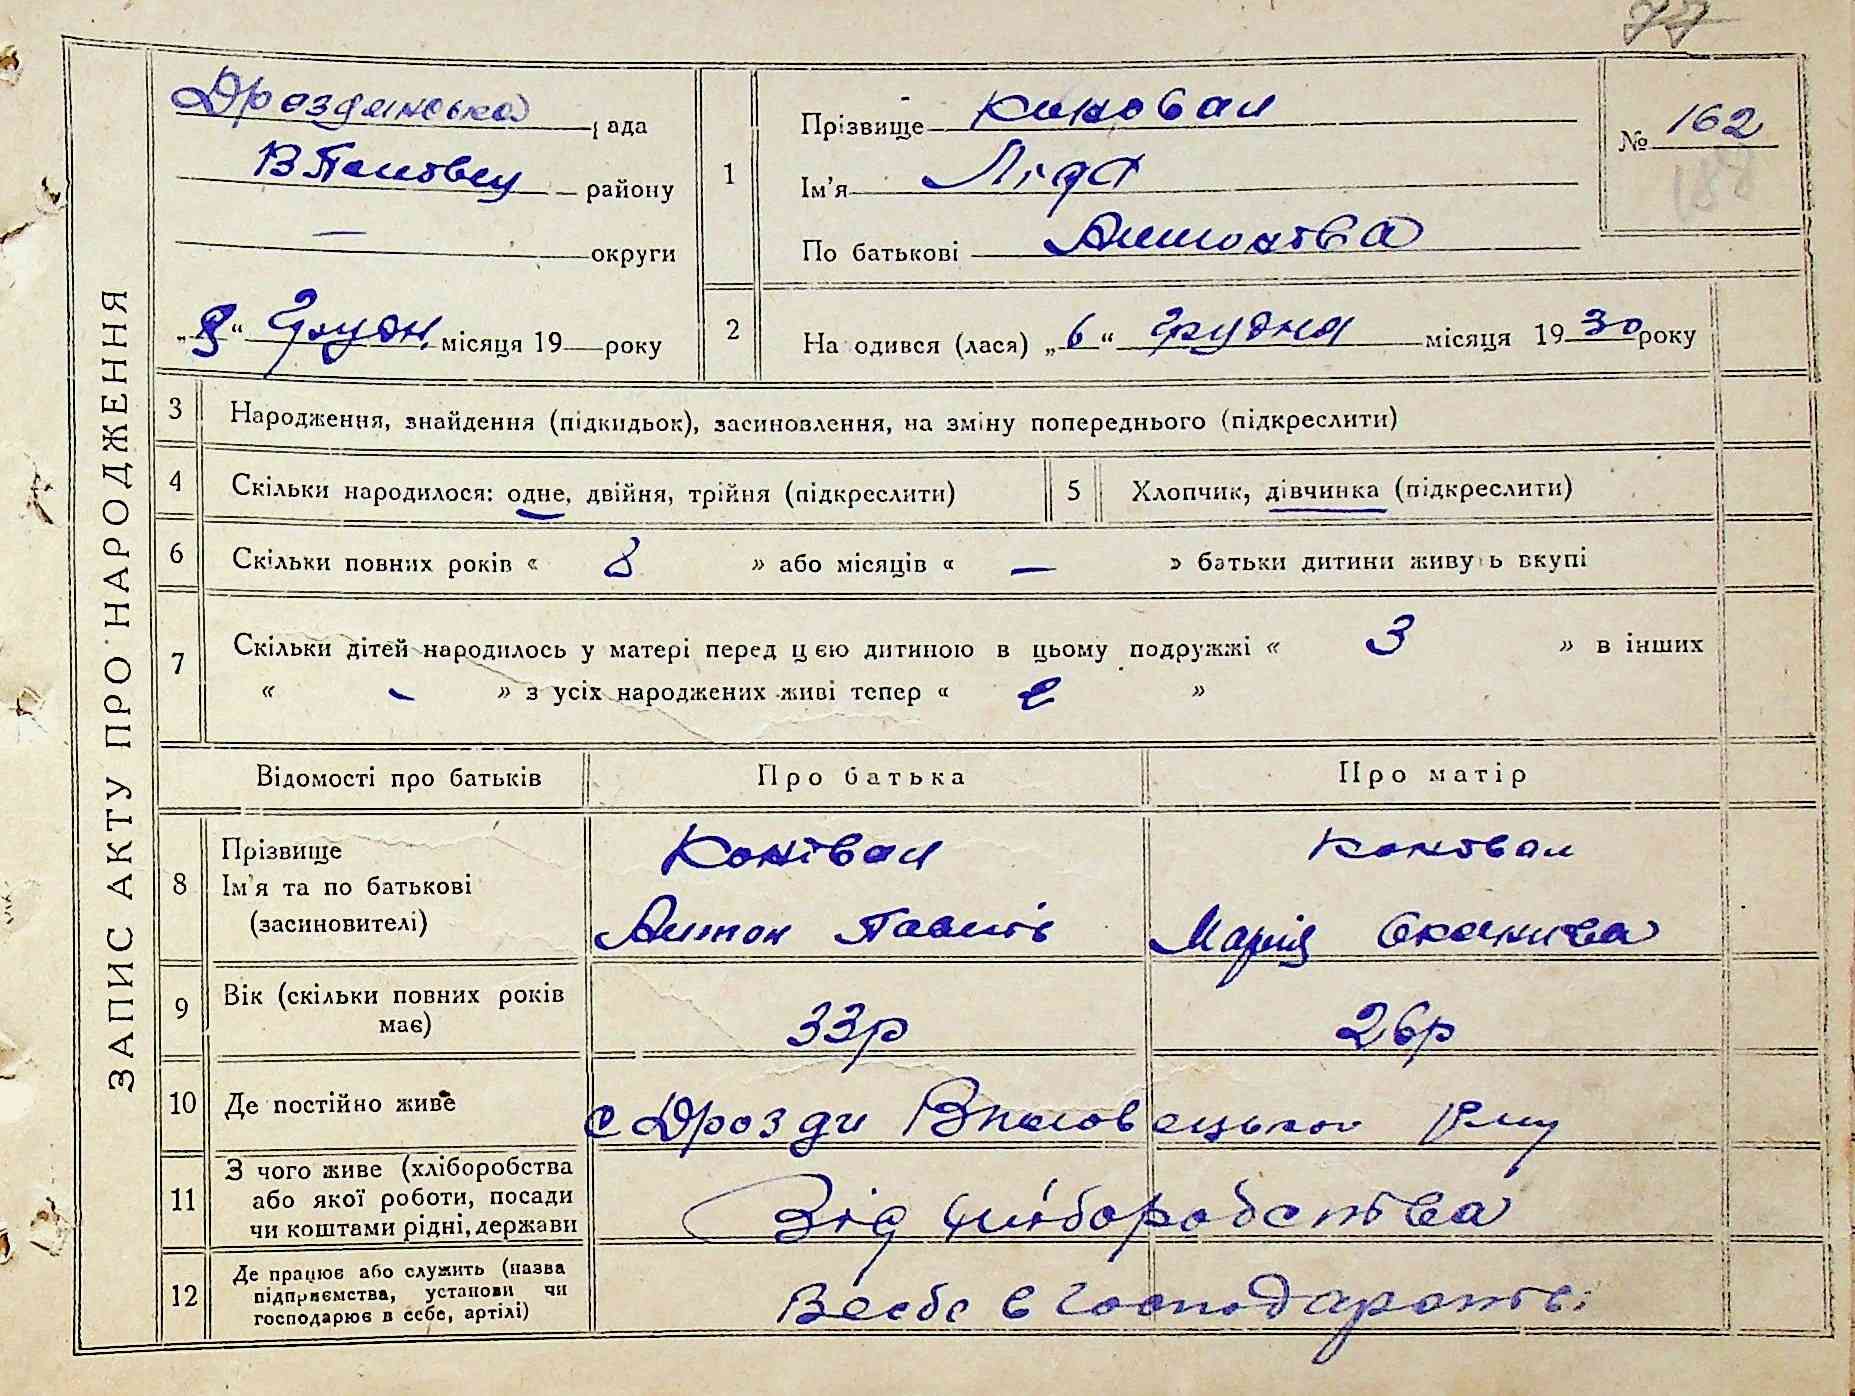 77
ЗАПИС АКТУ ПРО НАРОДЖЕННЯ
Дроздянська рада
району
— округи
„8“ Грудн. місяця 19 року
1
Прізвище Коновал
Ім'я Ліда
По батькові Антонова
№ 162
188
2
На одився (лася) „6“ Грудня місяця 1930 року
3 Народження, знайдення (підкидьок), засиновлення, на зміну попереднього (підкреслити)
4 Скільки народилося: одне, двійня, трійня (підкреслити)
5 Хлопчик, дівчинка (підкреслити)
6 Скільки повних років « 8 » або місяців « — » батьки дитини живуть вкупі
7 Скільки дітей народилось у матері перед цею дитиною в цьому подружжі « 3 » в інших
« - » з усіх народжених живі тепер « »
Відомості про батьків Про батька Про матір
8 Прізвище
Ім'я та по батькові
(засиновителі)
Коновал
Антон Павлов
Коновал
Марія
9 Вік (скільки повних років
має)
33р
26р
10 Де постійно живе
с Дрозди Вполовецького р-ну
11 З чого живе (хліборобства
або якої роботи, посади
чи коштами рідні, держави
Від хліборобства
12 Де працює або служить (назва
підприємства, установи чи
господарює в себе, артілі)
В себе в господарстві